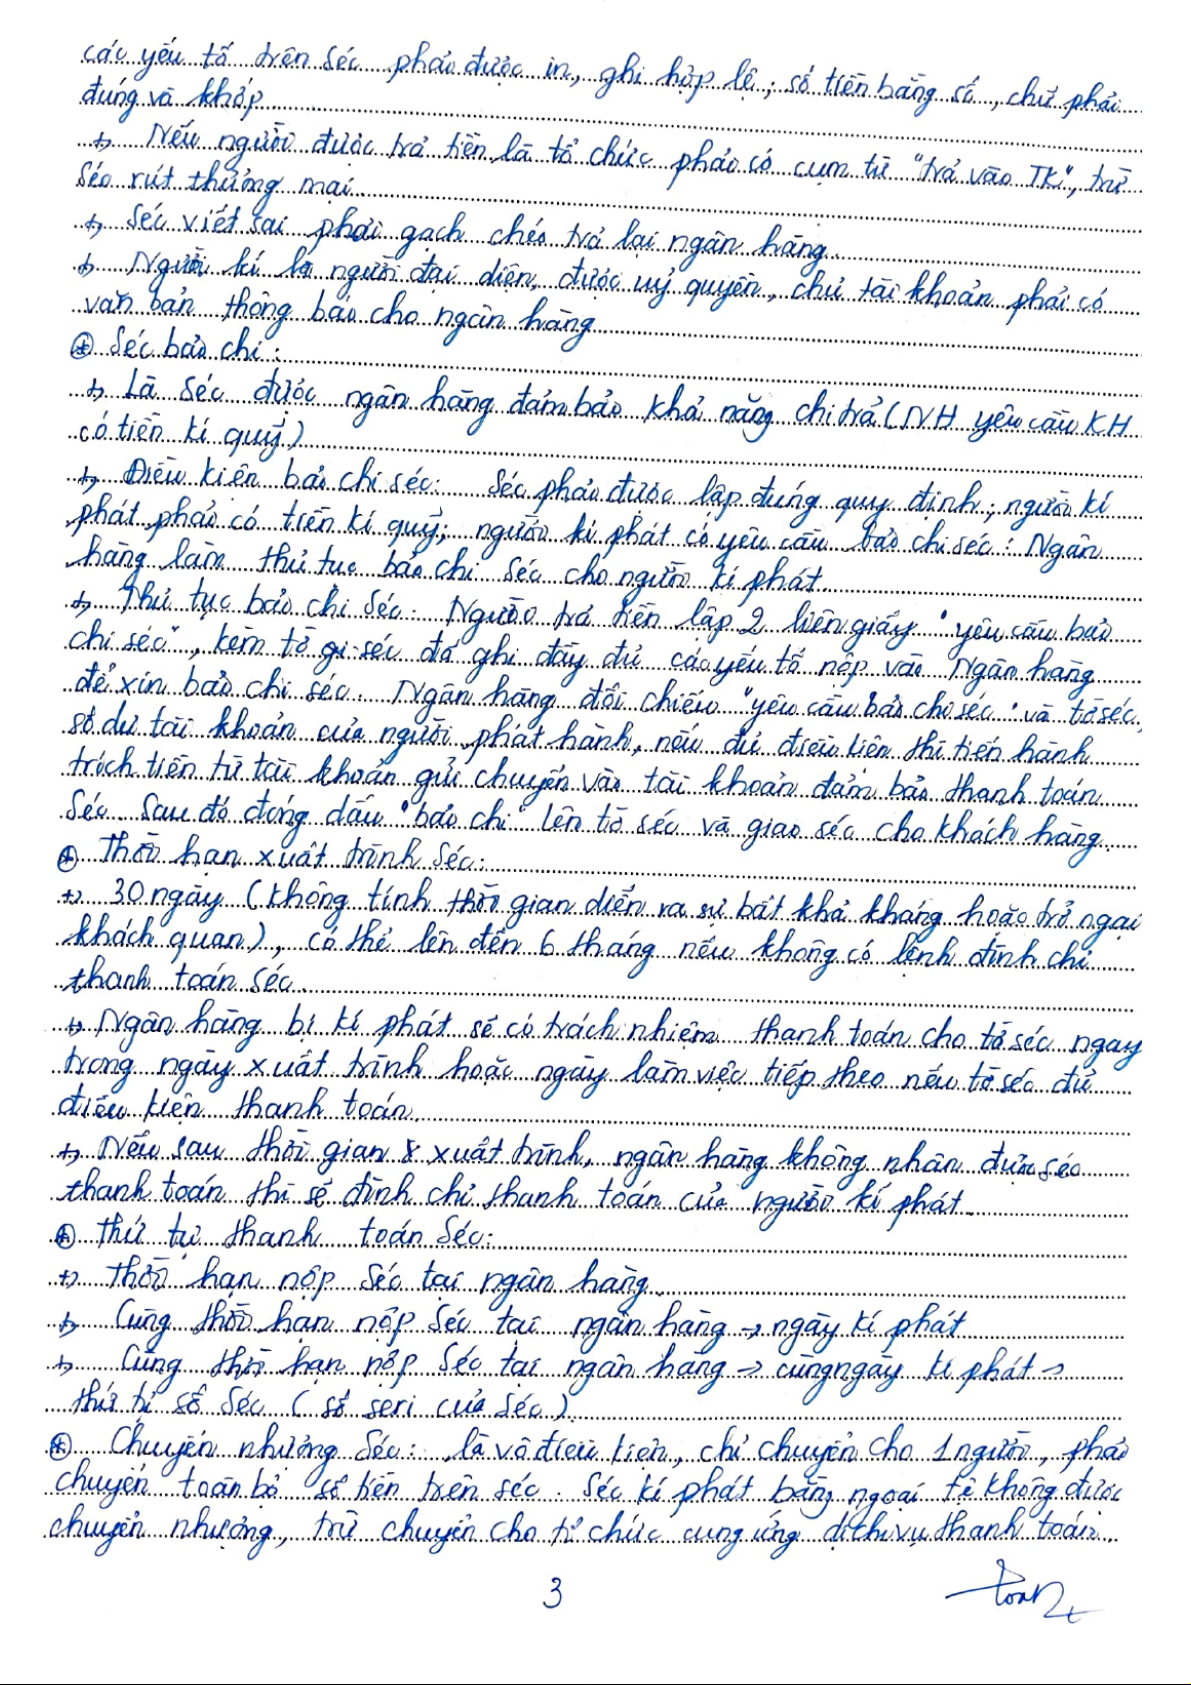 các yếu tố trên séc phải được in, ghi hợp lệ; số tiền bằng số, chữ phải
đúng và khớp
+, Nếu người được trả tiền là tổ chức phải có cụm từ "trả vào TK", trừ
Séc rút thương mại
+, Séc viết sai phải gạch chéo trả lại ngân hàng.
+, Người kí là người đại diện, được uỷ quyền, chủ tài khoản phải có
văn bản thông báo cho ngân hàng
⊕ Séc bảo chi:
+, Là séc được ngân hàng đảm bảo khả năng chi trả (NH yêu cầu KH
có tiền kí quỹ)
+, Điều kiện bảo chi séc: Séc phải được lập đúng quy định; người kí
phát phải có tiền kí quỹ; người kí phát có yêu cầu bảo chi séc: Ngân
hàng làm thủ tục bảo chi séc cho người kí phát.
+, Thủ tục bảo chi Séc: Người trả tiền lập 2 liên giấy "yêu cầu bảo
chi séc", kèm tờ séc đã ghi đầy đủ các yếu tố nộp vào Ngân hàng
để xin bảo chi séc. Ngân hàng đối chiếu "yêu cầu bảo cho séc" và tờ séc,
số dư tài khoản của người phát hành, nếu đủ điều kiện thì tiến hành
trích tiền từ tài khoản gửi chuyển vào tài khoản đảm bảo thanh toán
Séc. Sau đó đóng dấu "bảo chi" lên tờ séc và giao séc cho khách hàng.
⊕ Thời hạn xuất trình Séc:
+, 30 ngày (không tính thời gian diễn ra sự bất khả kháng hoặc trở ngại
khách quan), có thể lên đến 6 tháng nếu không có lệnh đình chỉ
thanh toán séc.
+, Ngân hàng bị kí phát sẽ có trách nhiệm thanh toán cho tờ séc ngay
trong ngày xuất trình hoặc ngày làm việc tiếp theo nếu tờ séc đủ
điều kiện thanh toán.
+, Nếu sau thời gian xuất trình, ngân hàng không nhận được séc
thanh toán thì sẽ đình chỉ thanh toán của người kí phát.
⊕ Thứ tự thanh toán Séc:
+, Thời hạn nộp Séc tại ngân hàng.
+, Cùng thời hạn nộp Séc tại ngân hàng → ngày kí phát
+, Cùng thời hạn nộp Séc tại ngân hàng → cùng ngày kí phát →
thứ tự số Séc (số seri của Séc)
⊕ Chuyển nhượng Séc: là vô điều kiện, chỉ chuyển cho 1 người, phải
chuyển toàn bộ số tiền trên séc. Séc kí phát bằng ngoại tệ không được
chuyển nhượng, trừ chuyển cho tổ chức cung ứng dịch vụ thanh toán.
3